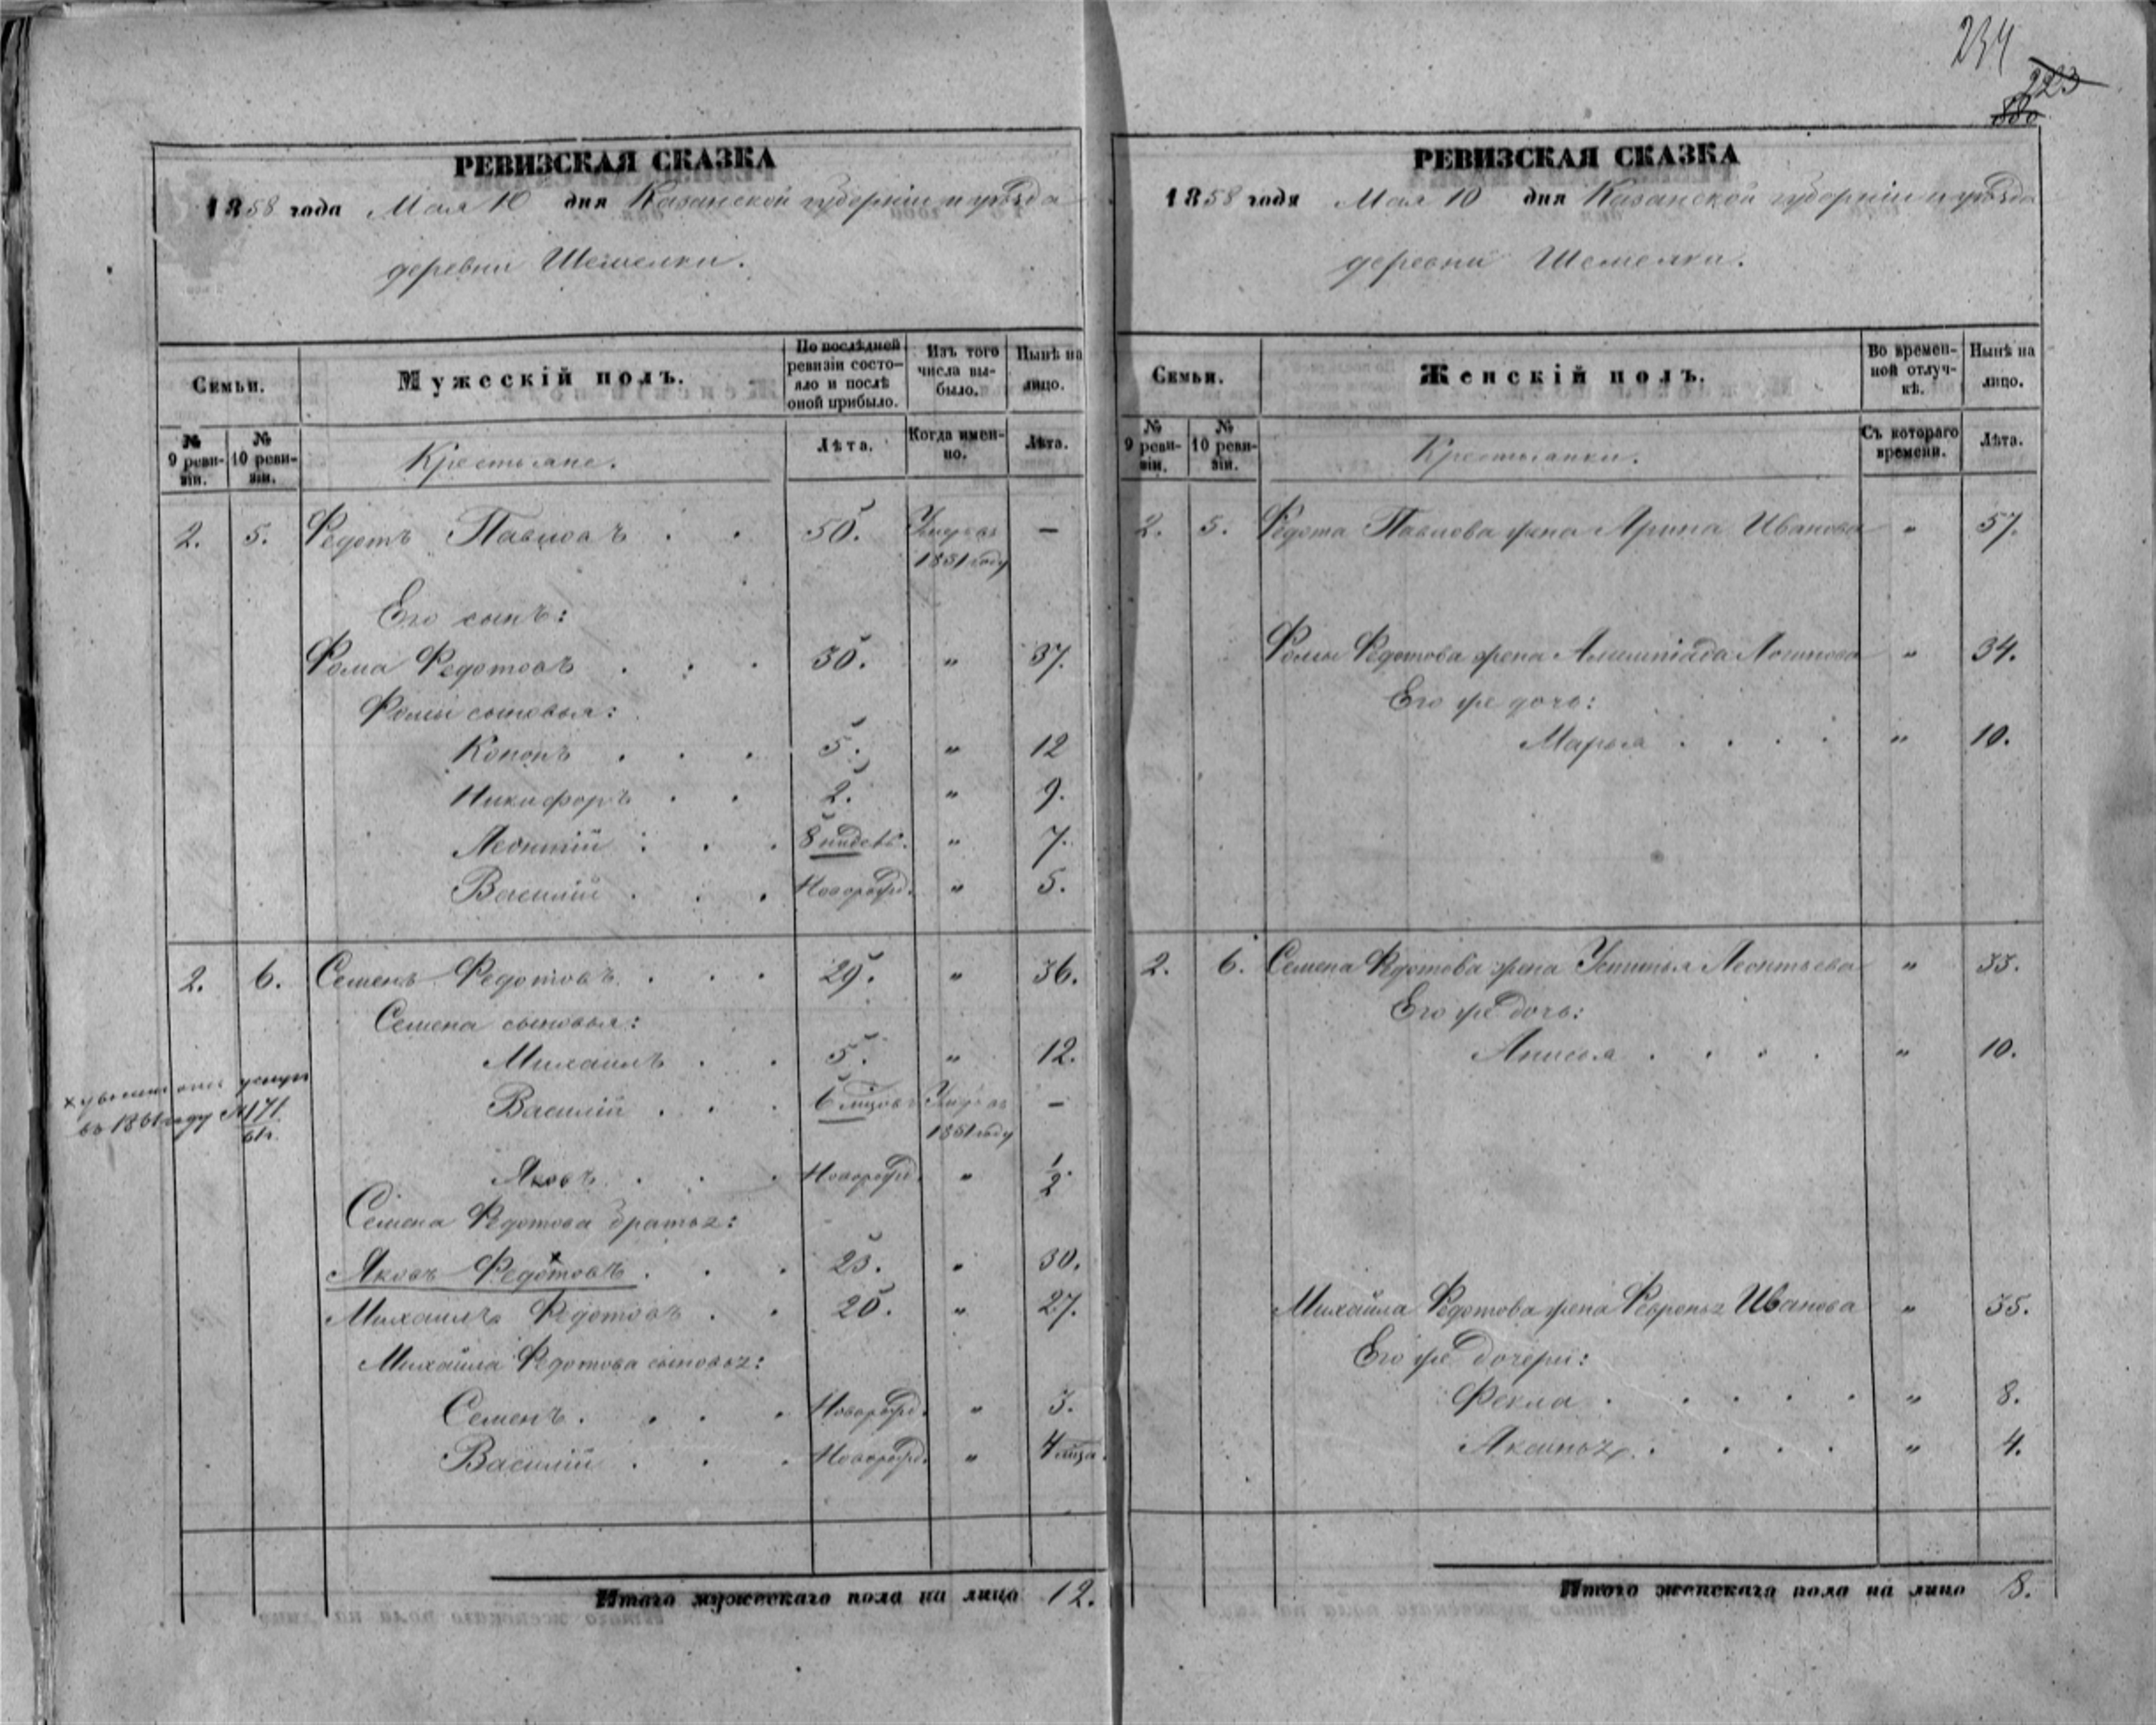 234
223
880
РЕВИЗСКАЯ СКАЗКА
1858 года Мая 10 дня Казанской губерніи и уѣзда
деревни Шемелки.
Семьи.
Мужескій полъ.
По послѣдней ревизіи состояло и послѣ оной прибыло.
Изъ того числа выбыло.
Нынѣ на лицо.
№ 9 ревизіи.
№ 10 ревизіи.
Крестьяне.
Лѣта.
Когда именно.
Лѣта.
2. 5. Федотъ Павловъ . . 50. Умеръ въ 1851 году —
Его сынъ:
Фома Федотовъ . . . 30. " 37.
Фомы сыновья:
Кононъ . . . 5. " 12
Никифоръ . . 2. " 9.
Леонтій . . . 8 недѣль. " 7.
Василій . . . Новорожд. " 5.
2. 6. Семенъ Федотовъ . . . 29. " 36.
Семена сыновья:
Михаилъ . . 5. " 12.
Василій . . . 6 мѣсяц. Умеръ въ 1851 году —
Яковъ . . . Новорожд. " 1/2.
Семена Федотова братья:
Яковъ Федотовъ . . . 23. " 30.
Михаилъ Федотовъ . . 20. " 27.
Михайла Федотова сыновья:
Семенъ . . . . Новорожд. " 3.
Василій . . . Новорожд. " 4 мѣся.
х уволенъ
въ 1861 году № 171
Итого мужескаго пола на лицо 12.
РЕВИЗСКАЯ СКАЗКА
1858 года Мая 10 дня Казанской губерніи и уѣзда
деревни Шемелки.
Семьи.
Женскій полъ.
Во временной отлучкѣ.
Нынѣ на лицо.
№ 9 ревизіи.
№ 10 ревизіи.
Крестьянки.
Съ котораго времени.
Лѣта.
2. 5. Федота Павлова жена Арина Иванова " 57.
Фомы Федотова жена Логинова " 34.
Его же дочь:
Марья . . . . " 10.
2. 6. Семена Федотова жена Устинья Леонтьева " 33.
Его же дочь:
Анисья . . . . " 10.
Михайла Федотова жена Февронья Иванова " 35.
Его же дочери:
Фекла . . . . . " 8.
Аксинья . . . . " 4.
Итого женскаго пола на лицо 8.